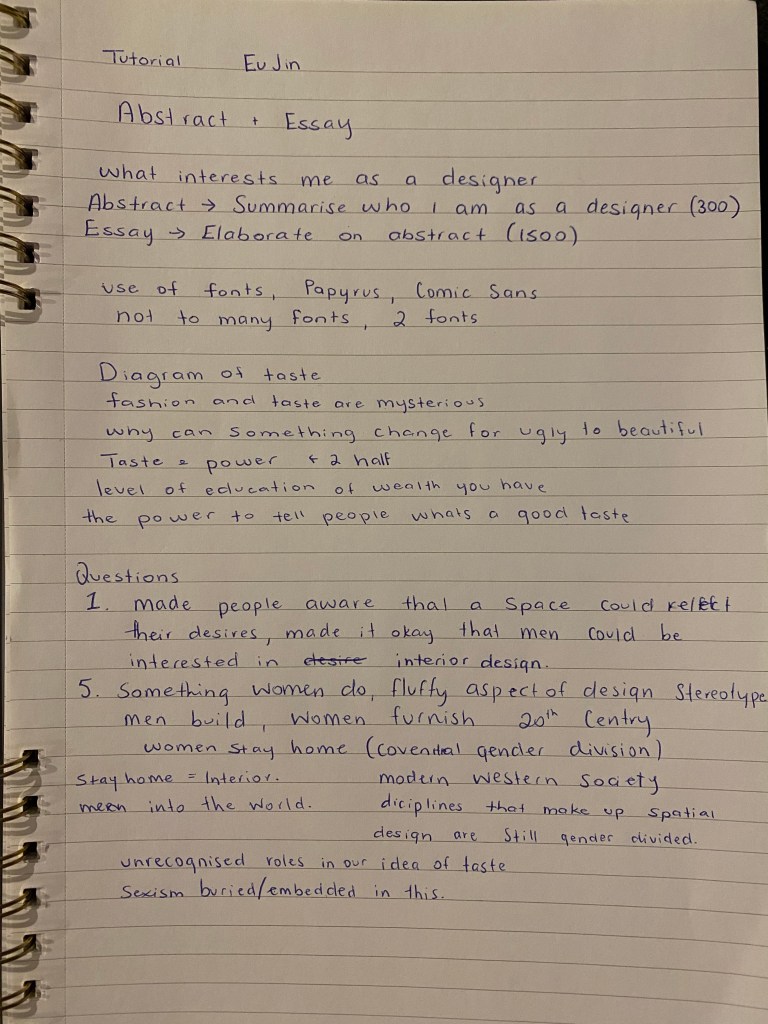 Tutorial Eu Jin
Abstract + Essay
what interests me as a designer
Abstract → Summarise who I am as a designer (300)
Essay → Elaborate on abstract (1500)
use of fonts, Papyrus, Comic Sans
not to many fonts, 2 fonts
Diagram of taste
fashion and taste are mysterious
why can something change for ugly to beautiful
Taste = power 2 half
level of education of wealth you have
the power to tell people whats a good taste
Questions
1. made people aware that a space could
their desires, made it okay that men could be
interested in desire interior design.
5. Something women do, fluffy aspect of design Stereotype
men build, women furnish 20th Centry
women stay home (gender division)
Stay home = Interior. modern western society
men into the world. diciplines that make up spatial
design are still gender divided.
unrecognised roles in our idea of taste
Sexism buried/embedded in this.